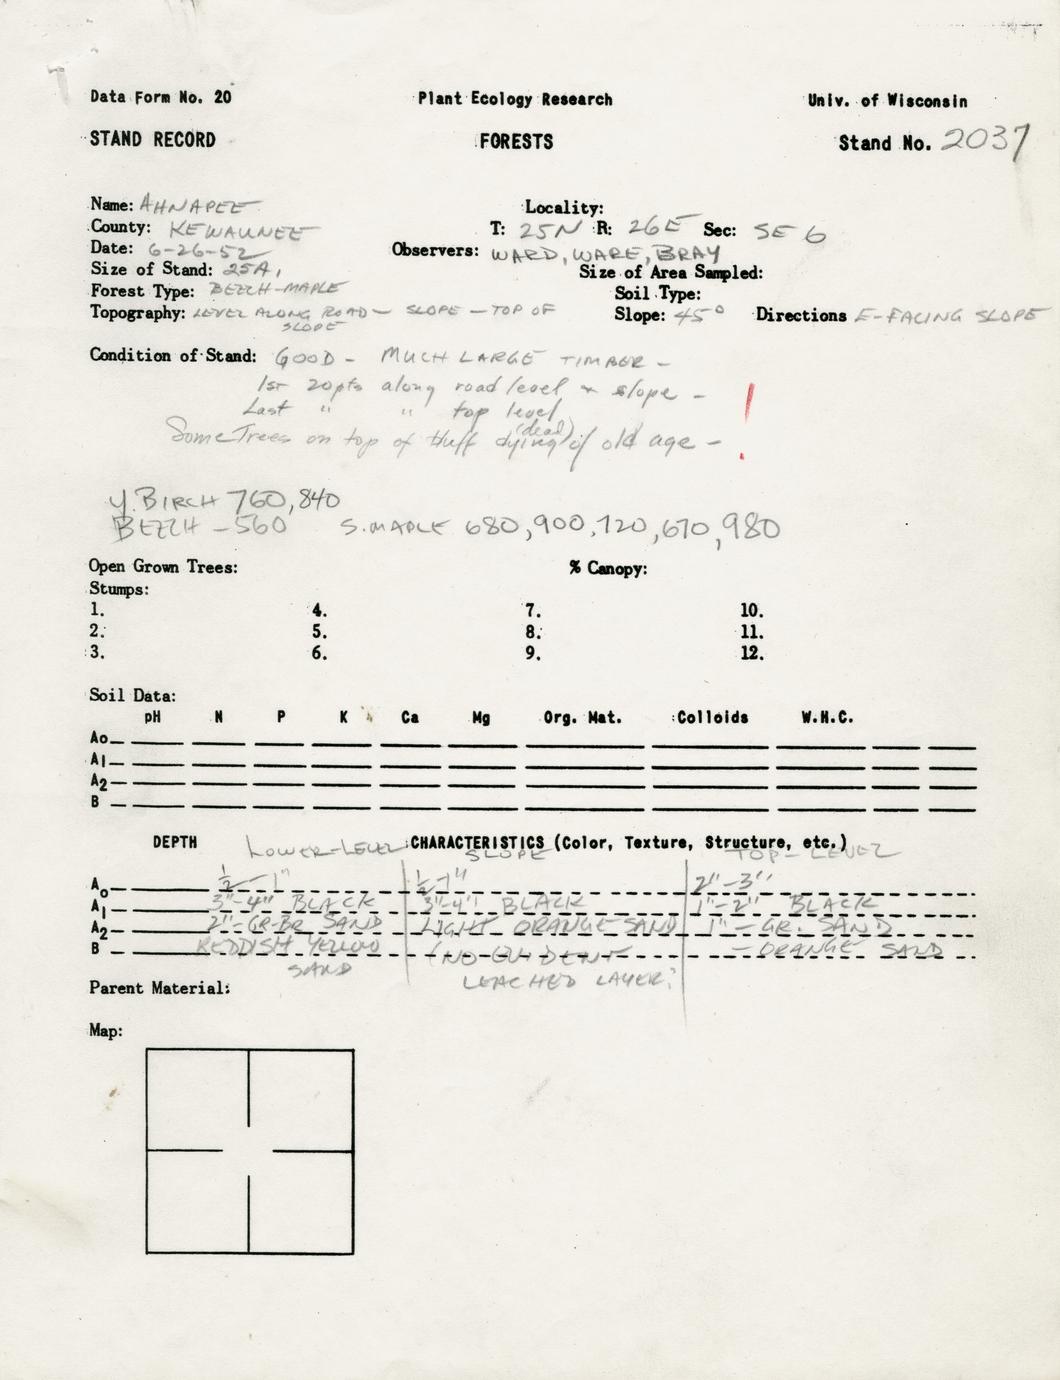 Data Form No. 20 Plant Ecology Research Univ. of Wisconsin
STAND RECORD FORESTS Stand No. 2037
Name: AHNAPEE Locality:
County: KEWAUNEE T: 25N R: 26E Sec: SE 6
Date: 6-26-52 Observers: WARD, WARE, BRAY
Size of Stand: 25A, Size of Area Sampled:
Forest Type: BEECH-MAPLE Soil Type:
Topography: LEVEL ALONG ROAD - SLOPE - TOP OF Slope: 45° Directions E-FACING SLOPE
SLOPE
Condition of Stand: GOOD - MUCH LARGE TIMBER -
1st 20pts along road level & slope -
Last " " top level
Some Trees on top of bluff dying (dead) of old age - !
Y. BIRCH 760, 840
BEECH - 560 S. MAPLE 680, 900, 720, 670, 980
Open Grown Trees: % Canopy:
Stumps:
1. 4. 7. 10.
2. 5. 8. 11.
3. 6. 9. 12.
Soil Data:
pH N P K Ca Mg Org. Mat. Colloids W.H.C.
Ao
A1
A2
B
DEPTH CHARACTERISTICS (Color, Texture, Structure, etc.)
LOWER-LEVEL SLOPE TOP-LEVEL
Ao ½-1" ½-1" 2"-3"
A1 3"-4" BLACK 3"-4" BLACK 1"-2" BLACK
A2 2"-GR-BR SAND LIGHT ORANGE SAND 1" - GR. SAND
B REDDISH YELLOW (NO EVIDENT - ORANGE SAND
SAND LEACHED LAYER?
Parent Material:
Map: